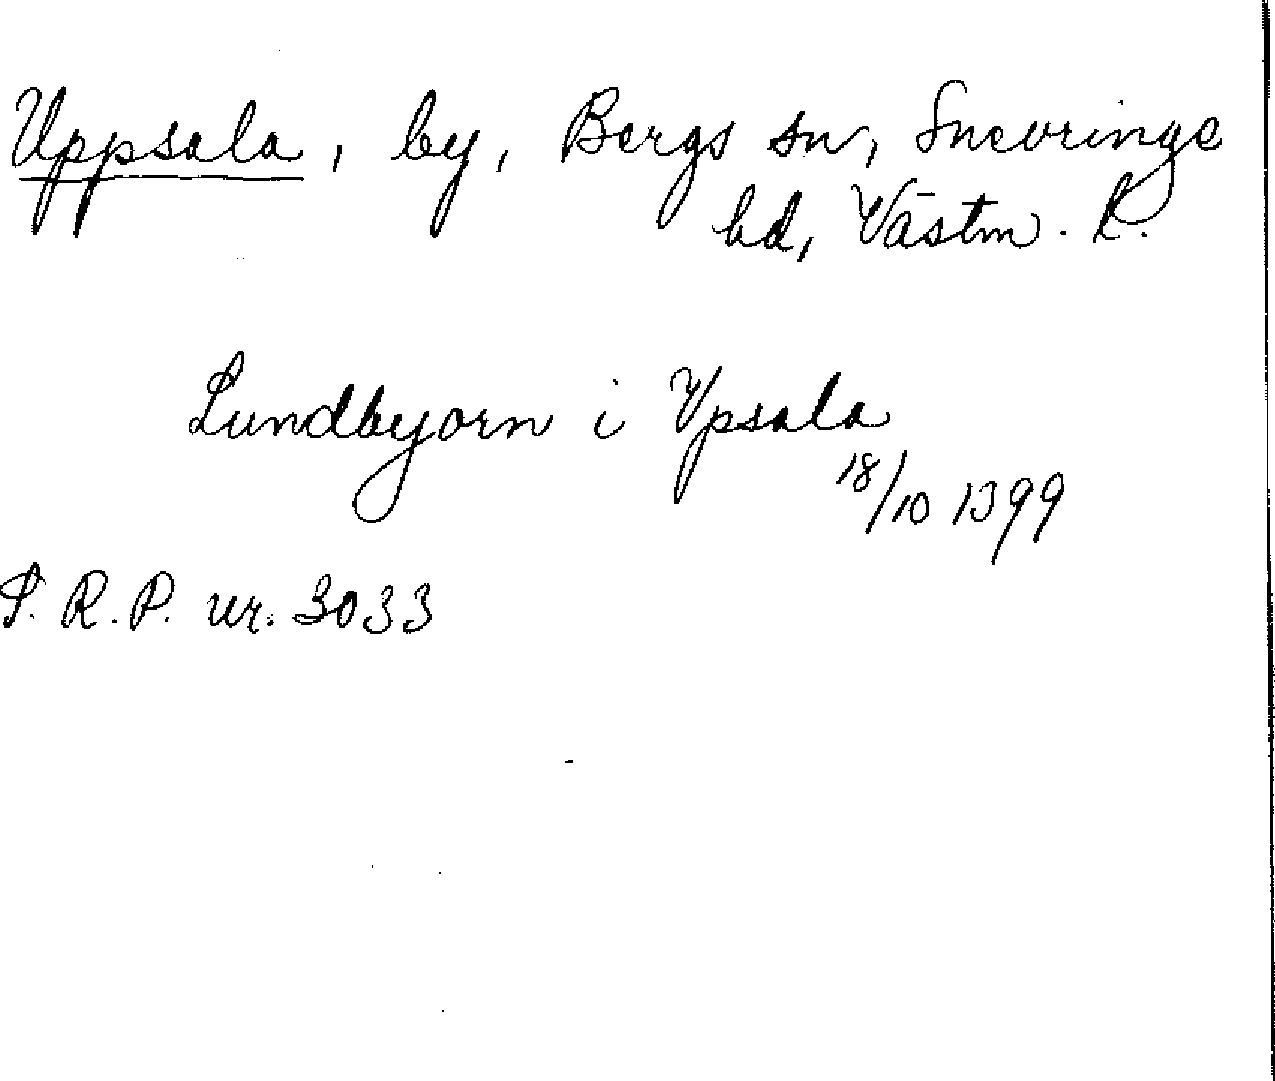 Uppsala, by, Bergs sn, Snevringe
hd, Västm. L.
Lundbyorn i Ypsala
18/10 1399
S.R.P. nr. 3033